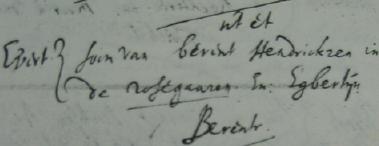 ut et
Evert { soon van berent Hendricksen in
de rosegaaren. En Egbertjn
Berents.